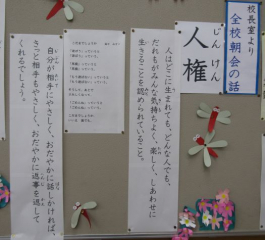 校長室より
全校朝会の話
じんけん
人権
人はどこに生まれても、どんな人でも、
だれもがみんな気持ちよく、楽しく、しあわせに
生きることを認められていること。
自分が相手にやさしく、おだやかに話しかければ、
きっと相手もやさしく、おだやかに返事を返して
くれるでしょう。